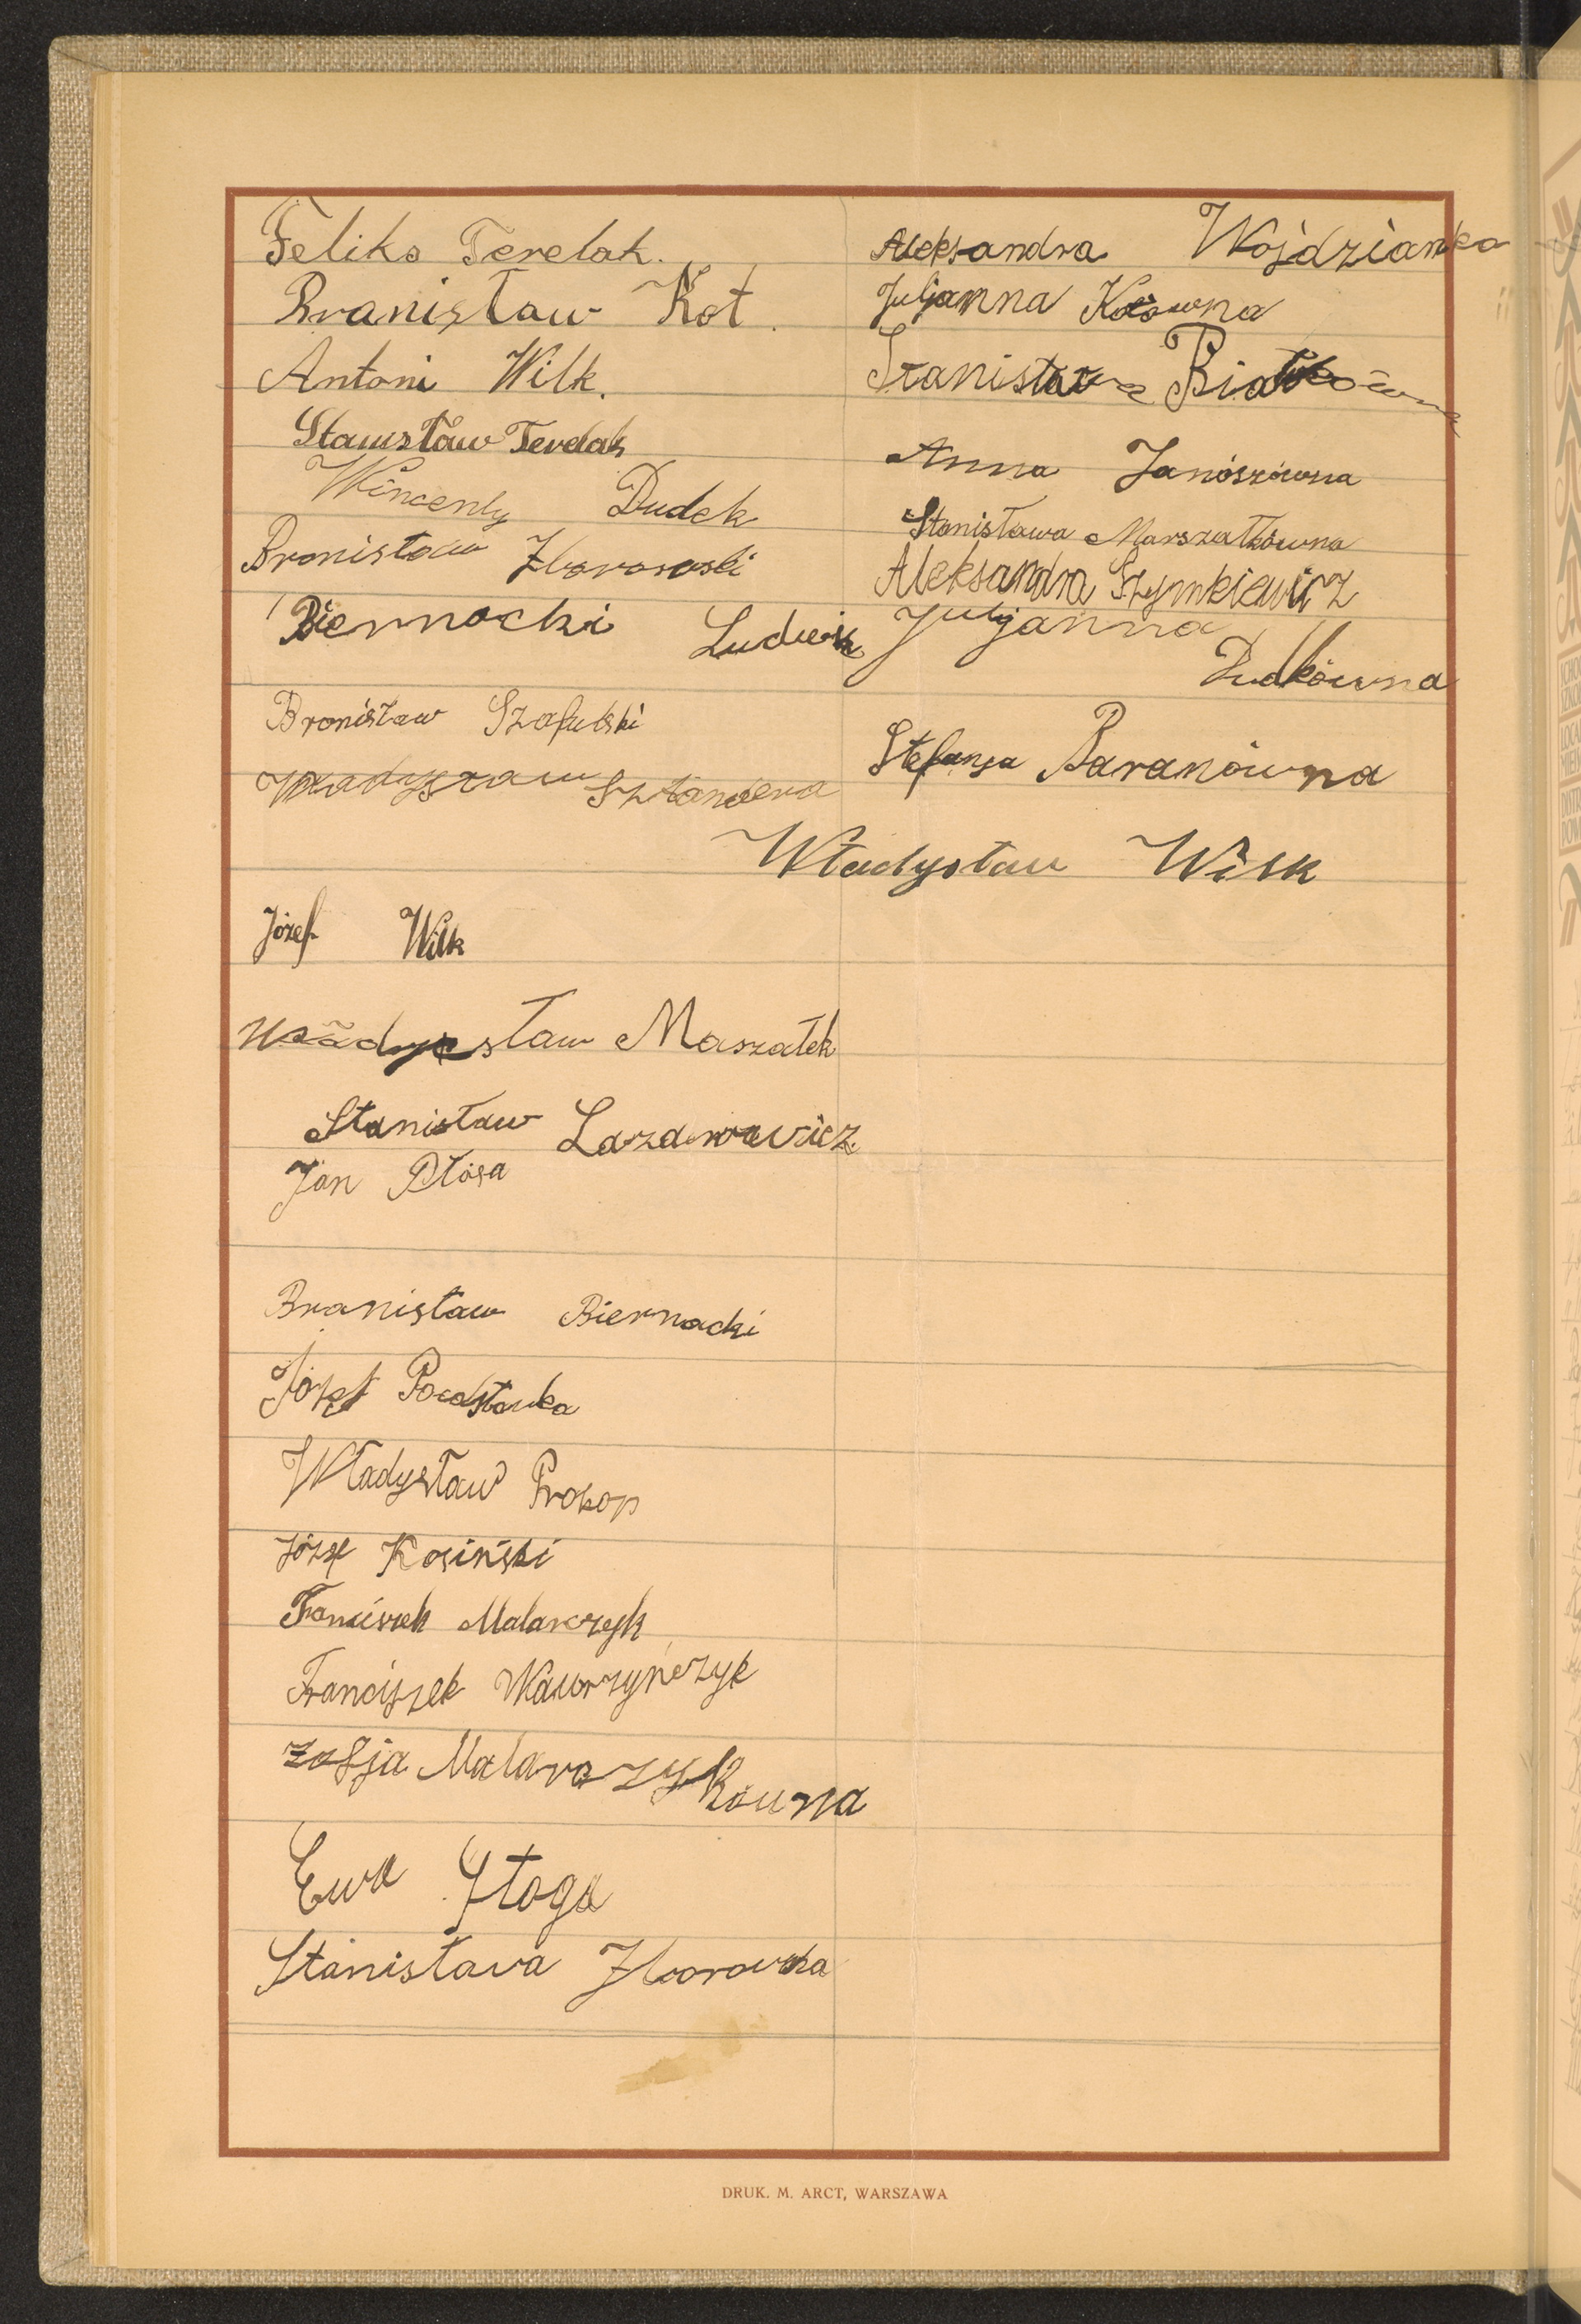 Feliks Terelak.
Branisław Kot.
Antoni Wilk.
Stanisław Terelak
Wincenty Dudek
Bronisław Zborowski
Biernacki Ludwik
Bronisław Szafulski
Władysław
Władysław Wilk
Józef Wilk
Władysław Maszałek
Stanisław Lazarowicz
Jan Płosa
Branisław Biernacki
Józef
Władysław Prokop
Józef Kosiński
Franciszek Malarczyk
Franciszek Wawrzyńczyk
Zofja Malarczykowna
Ewa Stoga
Stanisława Zborowska
Aleksandra Wójdzianka
Juljanna Kosówna
Stanisława Białkówna
Anna Janószówna
Stanisława Marszałkówna
Aleksandra Szymkiewicz
Juljanna
Dudkówna
Stefanja Baranówna
DRUK. M. ARCT, WARSZAWA